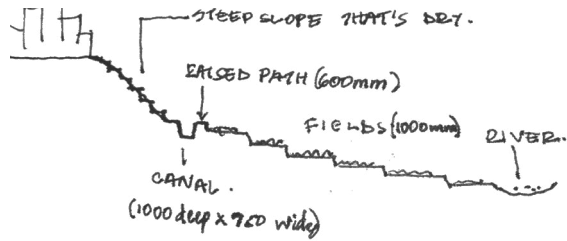 STEEP SLOPE THAT'S DRY.
RAISED PATH (600mm)
FIELDS (1000mm)
RIVER.
CANAL.
(1000 deep x 950 wide)